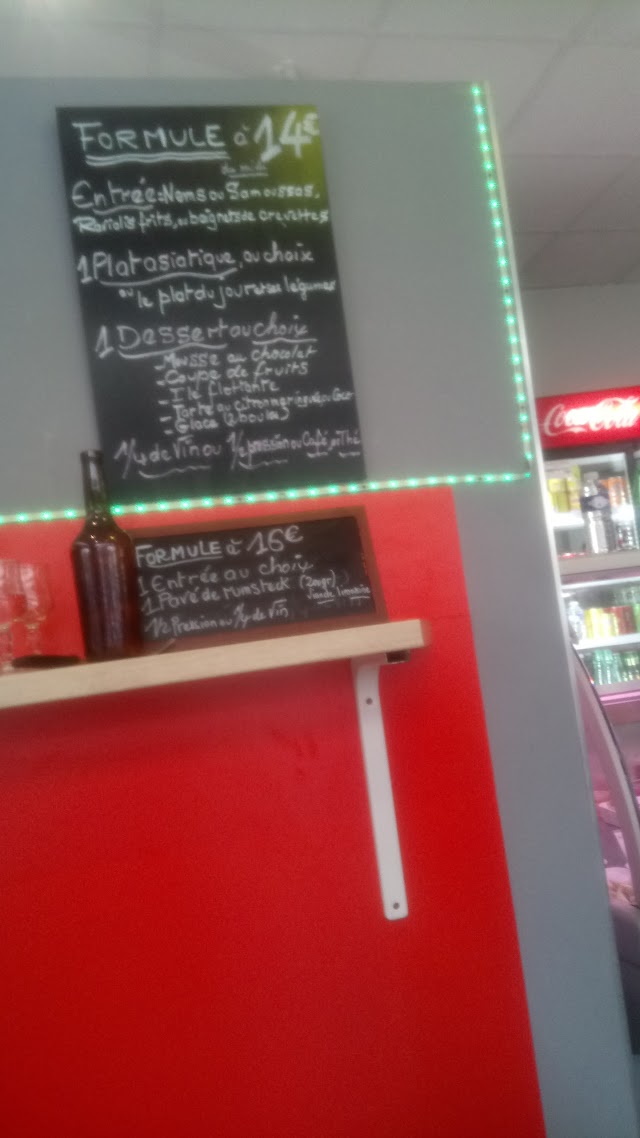 FORMULE à 14€
du midi
Entrée: Nems ou Samoussas,
Raviolis frits, ou baignets de crevettes
1 Plat asiatique, au choix
ou le plat du jour et ses légumes
1 Dessert au choix
- Mousse au chocolat
- Coupe de fruits
- Ile flottante
- Tarte au citron meringué ou
- Glace (2 boules)
1/4 de Vin ou 1/2 pression ou Café, ou Thé
FORMULE à 16€
1 Entrée au choix
1 Pavé de rumsteck (200gr)
viande limousine
1/2 Pression ou 1/4 de Vin
Coca-Cola